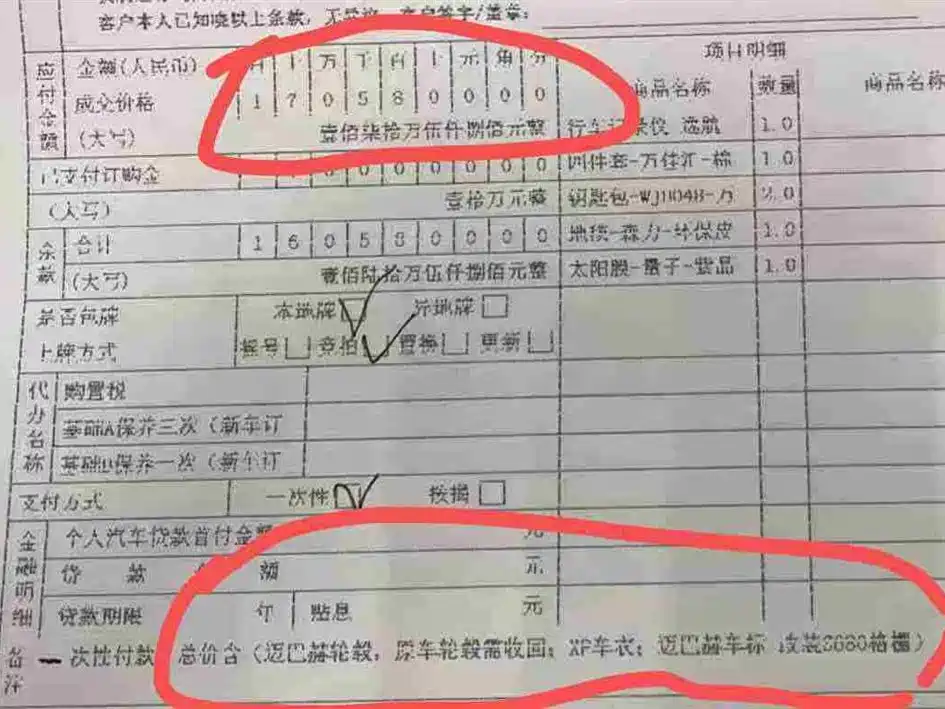 客户本人已知晓以上条款，无异议，客户签字/盖章：
应付金额
金额(人民币) 百 十 万 千 百 十 元 角 分
项目明细
成交价格 1 7 0 5 8 0 0 0 0
商品名称 数量 商品名称
(大写) 壹佰柒拾万伍仟捌佰元整
行车记录仪 1.0
已支付订购金 0 0 0 0 0 0 0
四件套-万佳汇-棉 1.0
(大写) 壹拾万元整
钥匙包 2.0
余款
合计 1 6 0 5 8 0 0 0 0
地毯-森力-环保皮 1.0
(大写) 壹佰陆拾万伍仟捌佰元整
太阳膜-量子-紫晶 1.0
是否包牌 本地牌 异地牌
上牌方式 摇号 竞拍 置换 更新
代办名称
购置税
基础A保养三次（新车订
基础B保养一次（新车订
支付方式 一次性 按揭
金融明细
个人汽车贷款首付金额 元
贷款 额 元
贷款期限 年 贴息 元
备注
一次性付款 总价含（迈巴赫轮毂，原车轮毂需收回；XP车衣；迈巴赫车标 改装S680格栅）